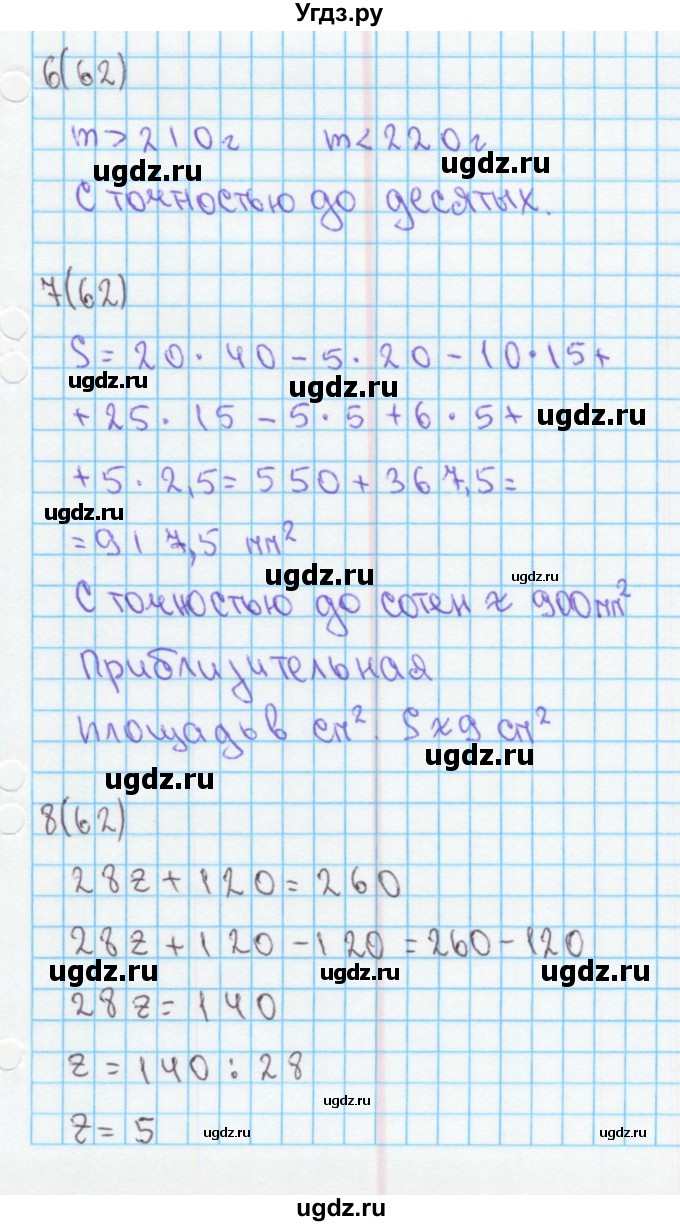 Угдз.ру
6(62)
m > 210 г     m < 220 г
ugdz.ru ugdz.ru
С точностью до десятых.
7(62)
S = 20 · 40 - 5 · 20 - 10 · 15 +
ugdz.ru ugdz.ru
+ 25 · 15 - 5 · 5 + 6 · 5 + ugdz.ru
+ 5 · 2,5 = 550 + 367,5 =
ugdz.ru
= 917,5 мм²
ugdz.ru ugdz.ru
С точностью до сотен ≈ 900 мм²
Приблизительная
площадь в см². S ≈ 9 см²
ugdz.ru ugdz.ru
8(62)
28z + 120 = 260
28z + 120 - 120 = 260 - 120
ugdz.ru ugdz.ru ugdz.ru
28z = 140
z = 140 : 28
ugdz.ru
z = 5 ugdz.ru ugdz.ru
ugdz.ru